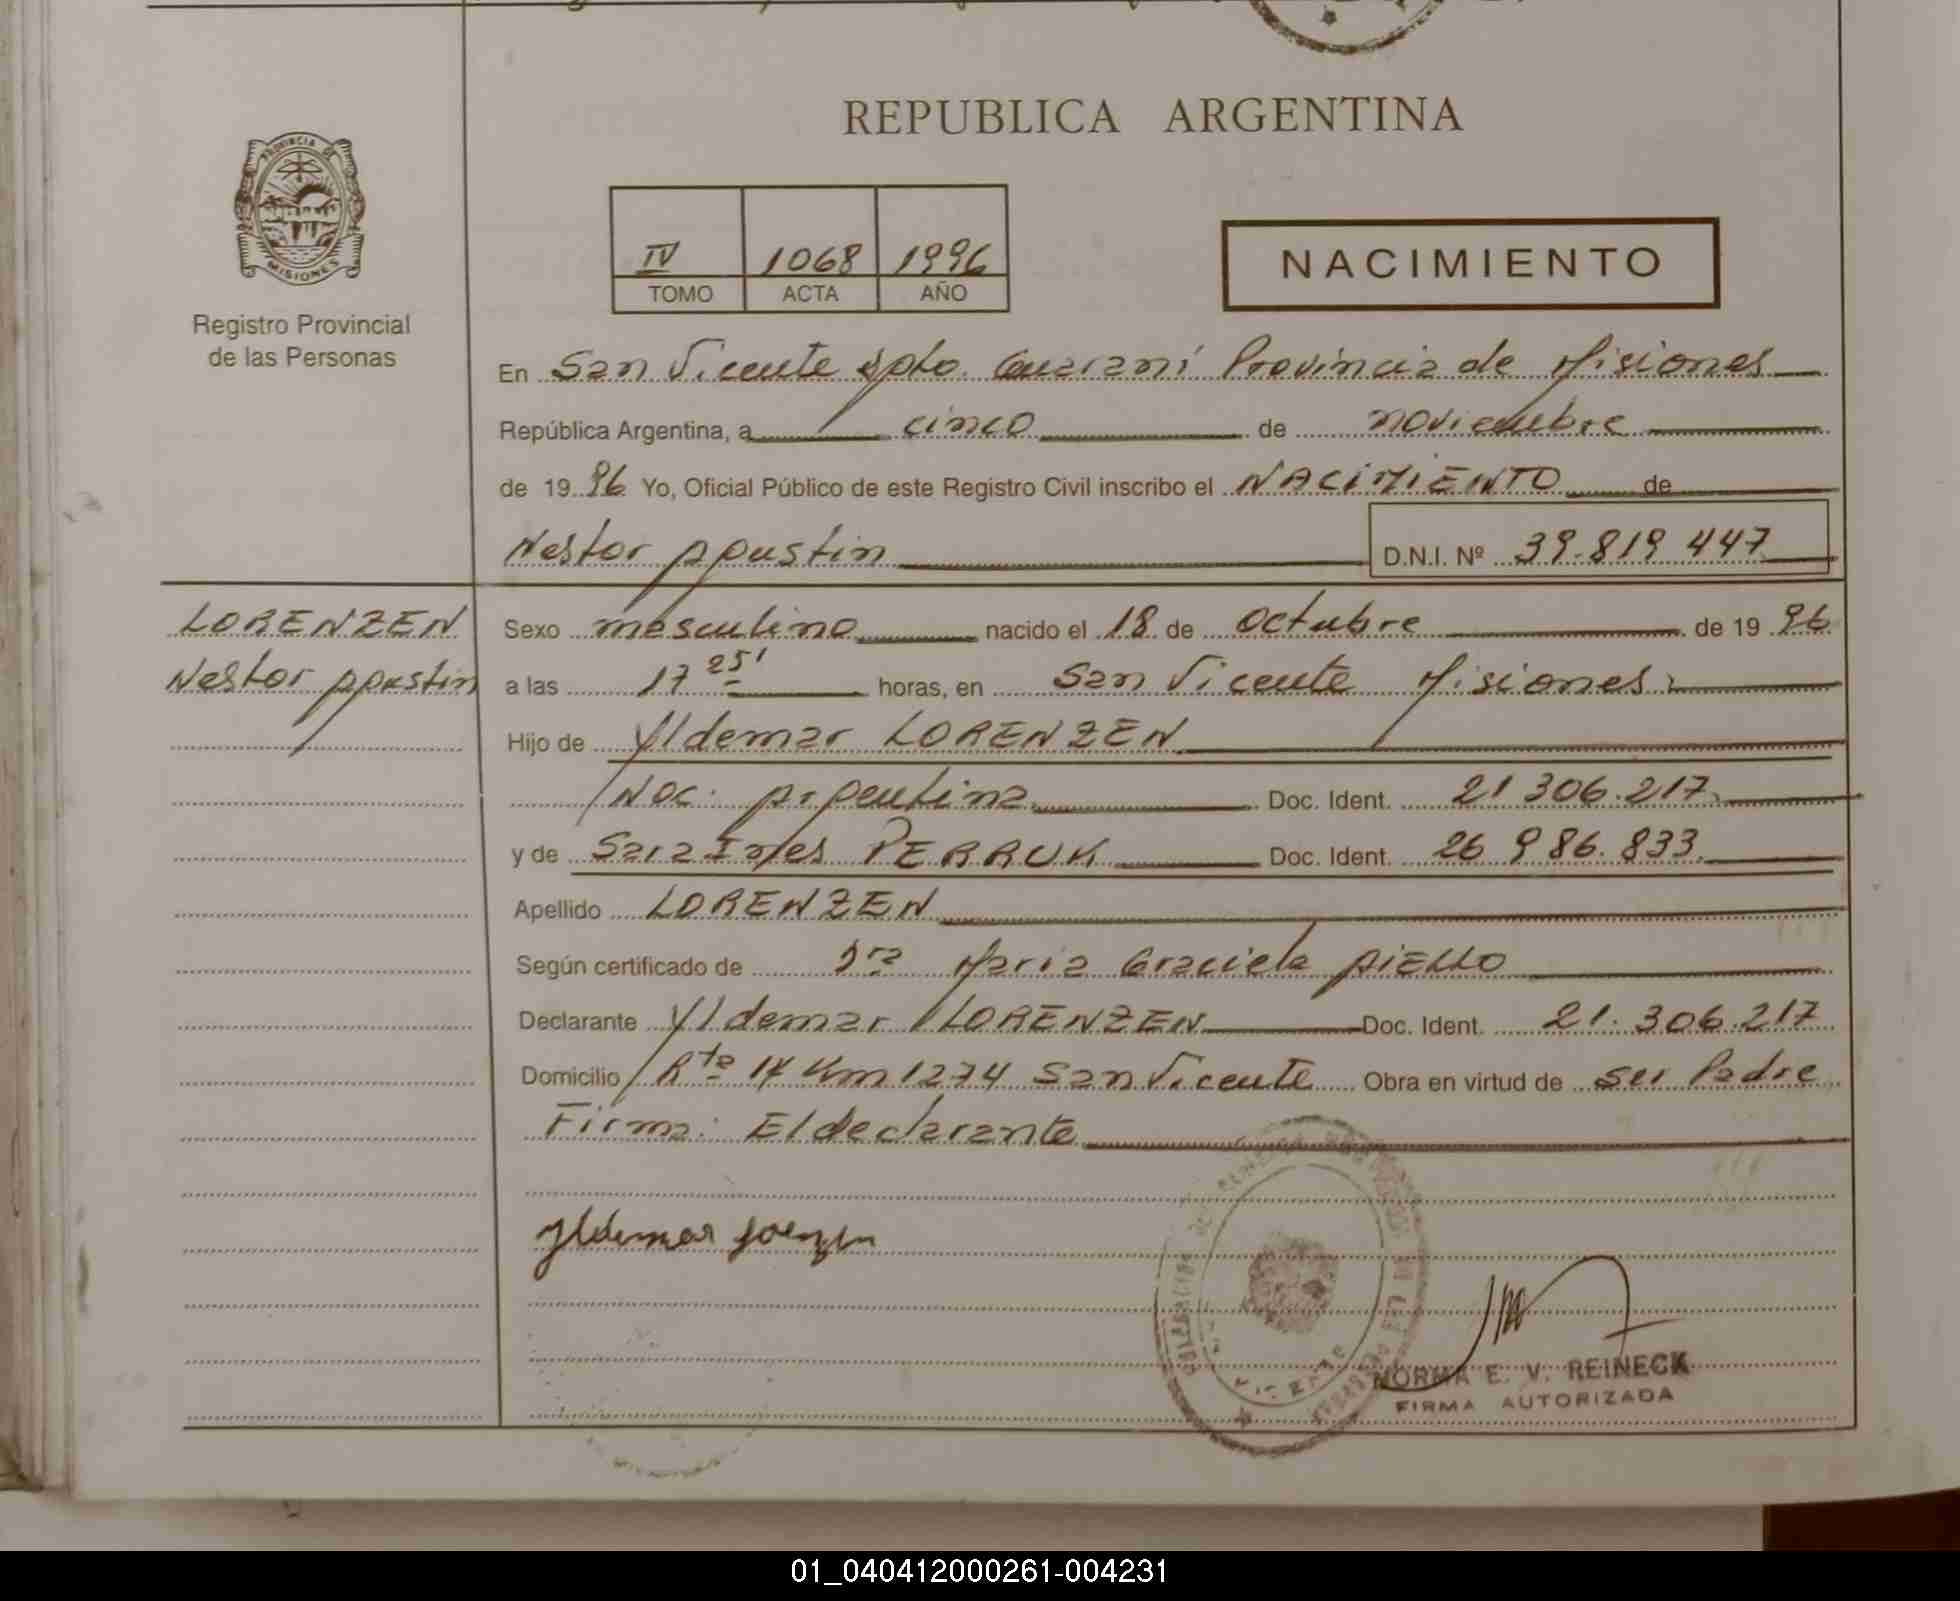 REPUBLICA ARGENTINA
PROVINCIA DE
MISIONES
Registro Provincial
de las Personas
IV 1068 1996
TOMO ACTA AÑO
NACIMIENTO
En San Vicente Dpto. Guaraní Provincia de Misiones
República Argentina, a cinco de noviembre
de 1996 Yo, Oficial Público de este Registro Civil inscribo el NACIMIENTO de
Nestor Agustin D.N.I. Nº 39.819.447
LORENZEN
Nestor Agustin
Sexo masculino nacido el 18 de octubre de 1996
a las 17 25' horas, en San Vicente Misiones
Hijo de Yldemar LORENZEN
Nac. Argentina Doc. Ident. 21 306.217
y de Sara Ines PERRUK Doc. Ident. 26 986.833
Apellido LORENZEN
Según certificado de Dra Maria Graciela AIELLO
Declarante Yldemar LORENZEN Doc. Ident. 21.306.217
Domicilio Rta 14 Km 1274 San Vicente Obra en virtud de ser Padre
Firma: El declarante
Yldemar Lorenzen
NORMA E. V. REINECK
FIRMA AUTORIZADA
01_040412000261-004231